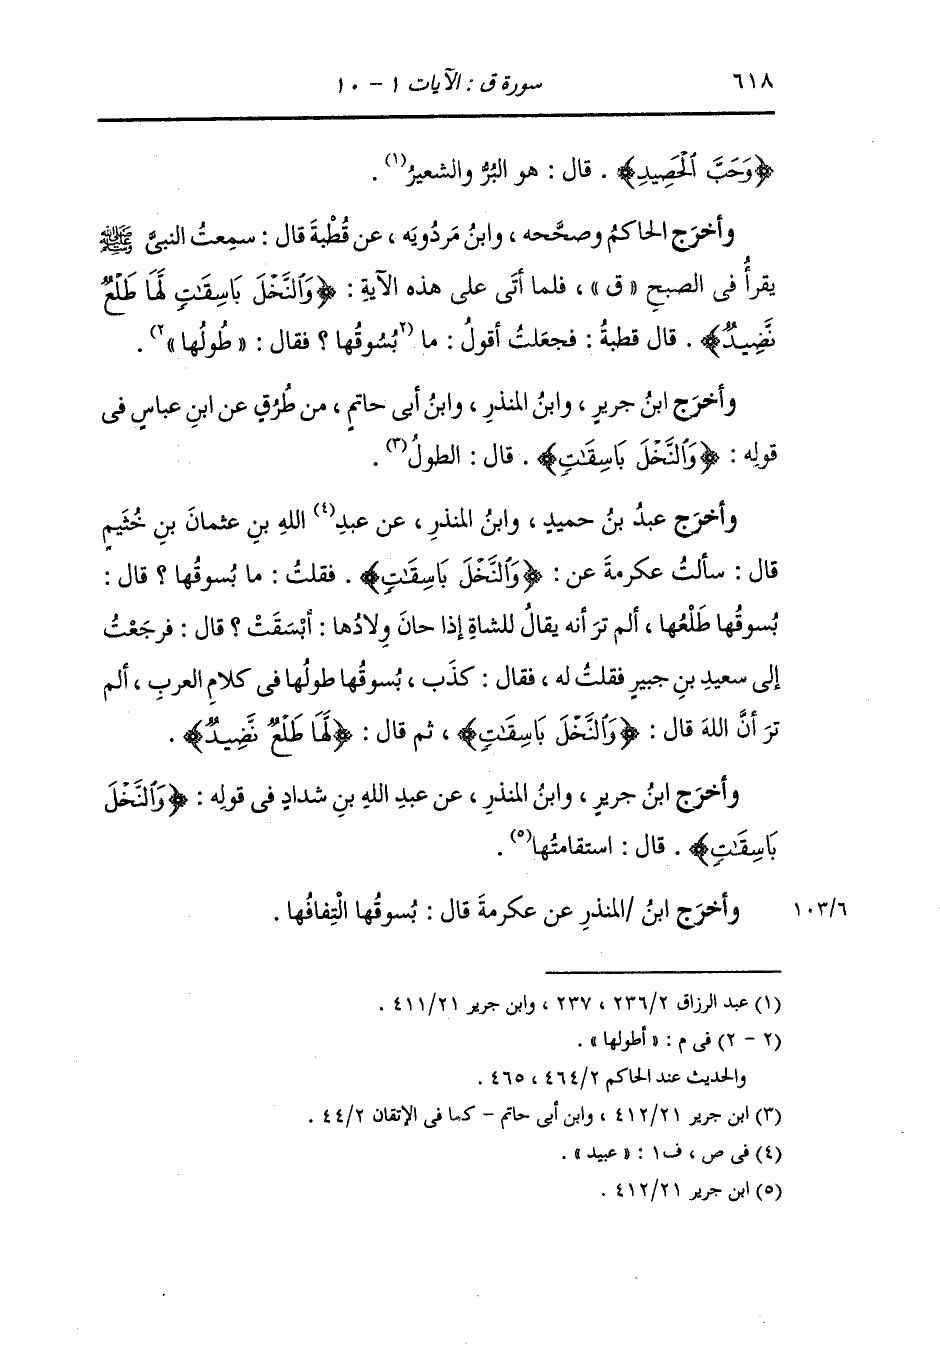 ٦١٨ سورة ق : الآيات ١ - ١٠
﴿وَحَبَّ ٱلْحَصِيدِ﴾ . قال : هو البُرُّ والشعيرُ(١) .
وأخرَج الحاكمُ وصحَّحه ، وابنُ مَردُويَه ، عن قُطْبةَ قال : سمِعتُ النبىَّ ﷺ
يقرأُ فى الصبحِ «ق» ، فلما أتَى على هذه الآيةِ : ﴿وَٱلنَّخْلَ بَاسِقَٰتٍ لَّهَا طَلْعٌ
نَّضِيدٌ﴾ . قال قطبةُ : فجعَلتُ أقولُ : ما (٢بُسُوقُها ؟ فقال : « طُولُها »٢) .
وأخرَج ابنُ جريرٍ ، وابنُ المنذرِ ، وابنُ أبى حاتمٍ ، من طُرُقٍ عن ابنِ عباسٍ فى
قولِه : ﴿وَٱلنَّخْلَ بَاسِقَٰتٍ﴾ . قال : الطولُ(٣) .
وأخرَج عبدُ بنُ حميدٍ ، وابنُ المنذرِ ، عن عبدِ(٤) اللهِ بنِ عثمانَ بنِ خُثَيمٍ
قال : سألتُ عكرمةَ عن : ﴿وَٱلنَّخْلَ بَاسِقَٰتٍ﴾ . فقلتُ : ما بُسوقُها ؟ قال :
بُسوقُها طَلْعُها ، ألم ترَ أنه يقالُ للشاةِ إذا حانَ وِلادُها : أبْسَقَتْ ؟ قال : فرجَعْتُ
إلى سعيدِ بنِ جبيرٍ فقلتُ له ، فقال : كذَب ، بُسوقُها طولُها فى كلامِ العربِ ، ألم
ترَ أنَّ اللهَ قال : ﴿وَٱلنَّخْلَ بَاسِقَٰتٍ﴾ ، ثم قال : ﴿لَّهَا طَلْعٌ نَّضِيدٌ﴾ .
وأخرَج ابنُ جريرٍ ، وابنُ المنذرِ ، عن عبدِ اللهِ بنِ شدادٍ فى قولِه : ﴿وَٱلنَّخْلَ
بَاسِقَٰتٍ﴾ . قال : استقامتُها(٥) .
١٠٣/٦ وأخرَج ابنُ /المنذرِ عن عكرمةَ قال : بُسوقُها الْتِفافُها .
(١) عبد الرزاق ٢٣٦/٢ ، ٢٣٧ ، وابن جرير ٤١١/٢١ .
(٢ - ٢) فى م : « أطولها » .
والحديث عند الحاكم ٤٦٤/٢ ، ٤٦٥ .
(٣) ابن جرير ٤١٢/٢١ ، وابن أبى حاتم - كما فى الإتقان ٤٤/٢ .
(٤) فى ص ، ف١ : « عبيد » .
(٥) ابن جرير ٤١٢/٢١ .